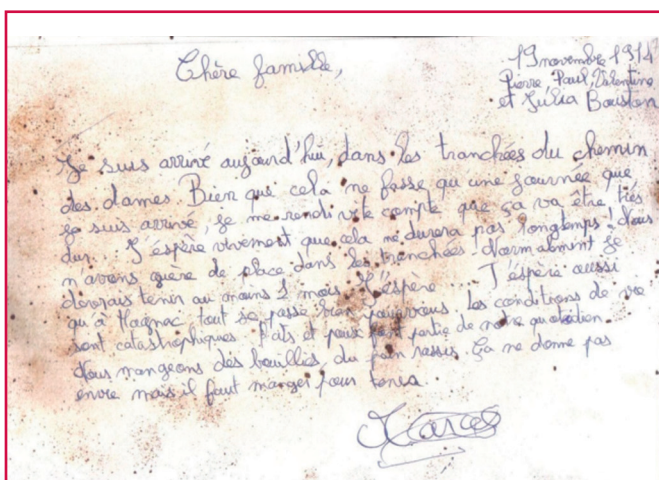 Chère famille,
19 novembre 1914
Pierre Paul, Valentine
et Julia Bouston
Je suis arrivé aujourd'hui, dans les tranchées du chemin
des dames. Bien que cela ne fasse qu'une journée que
je suis arrivé, je me rendi vite compte que ça va être très
dur... J'éspère vivement que cela ne durera pas longtemps! Nous
n'avons guère de place dans les tranchées! Normalment je
devrais tenir au moins 2 mois, j'éspère... J'éspère aussi
qu'à Magnac tout se passe bien pour vous. Les conditions de vie
sont catastrophiques. Rats et poux font partie de notre quotidien.
Nous mangeons des bouillies, du pain rassis. Ça ne donne pas
envie mais il faut manger pour tenir.
Marcel